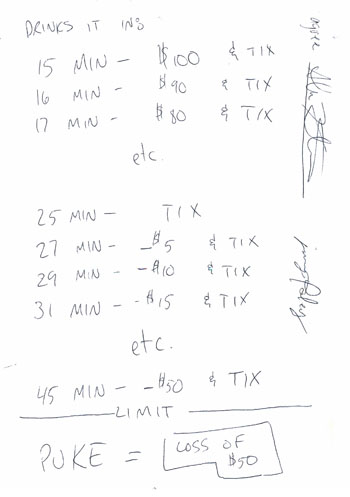 DRINKS IT IN:
15 MIN - $100 & TIX
16 MIN - $90 & TIX
17 MIN - $80 & TIX
etc.
25 MIN - TIX
27 MIN - -$5 & TIX
29 MIN - -$10 & TIX
31 MIN - -$15 & TIX
etc.
45 MIN - -$50 & TIX
LIMIT
PUKE = LOSS OF
$50